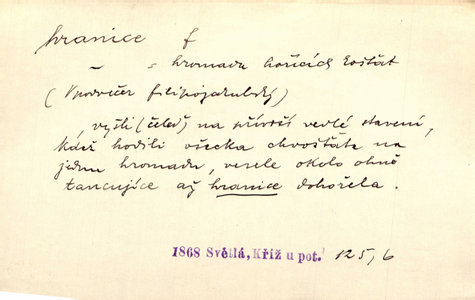 hranice f
~ s hromadu hořících košťat
(V podvečer filipojakubský)
, vyšli (čeleď) na návrší vedlé stavení,
kdež hodili všecka chvošťata na
jednu hromadu, vesele okolo ohně
tancujíce až hranice dohořela.
1868 Světlá, Kříž u pot. 125,6